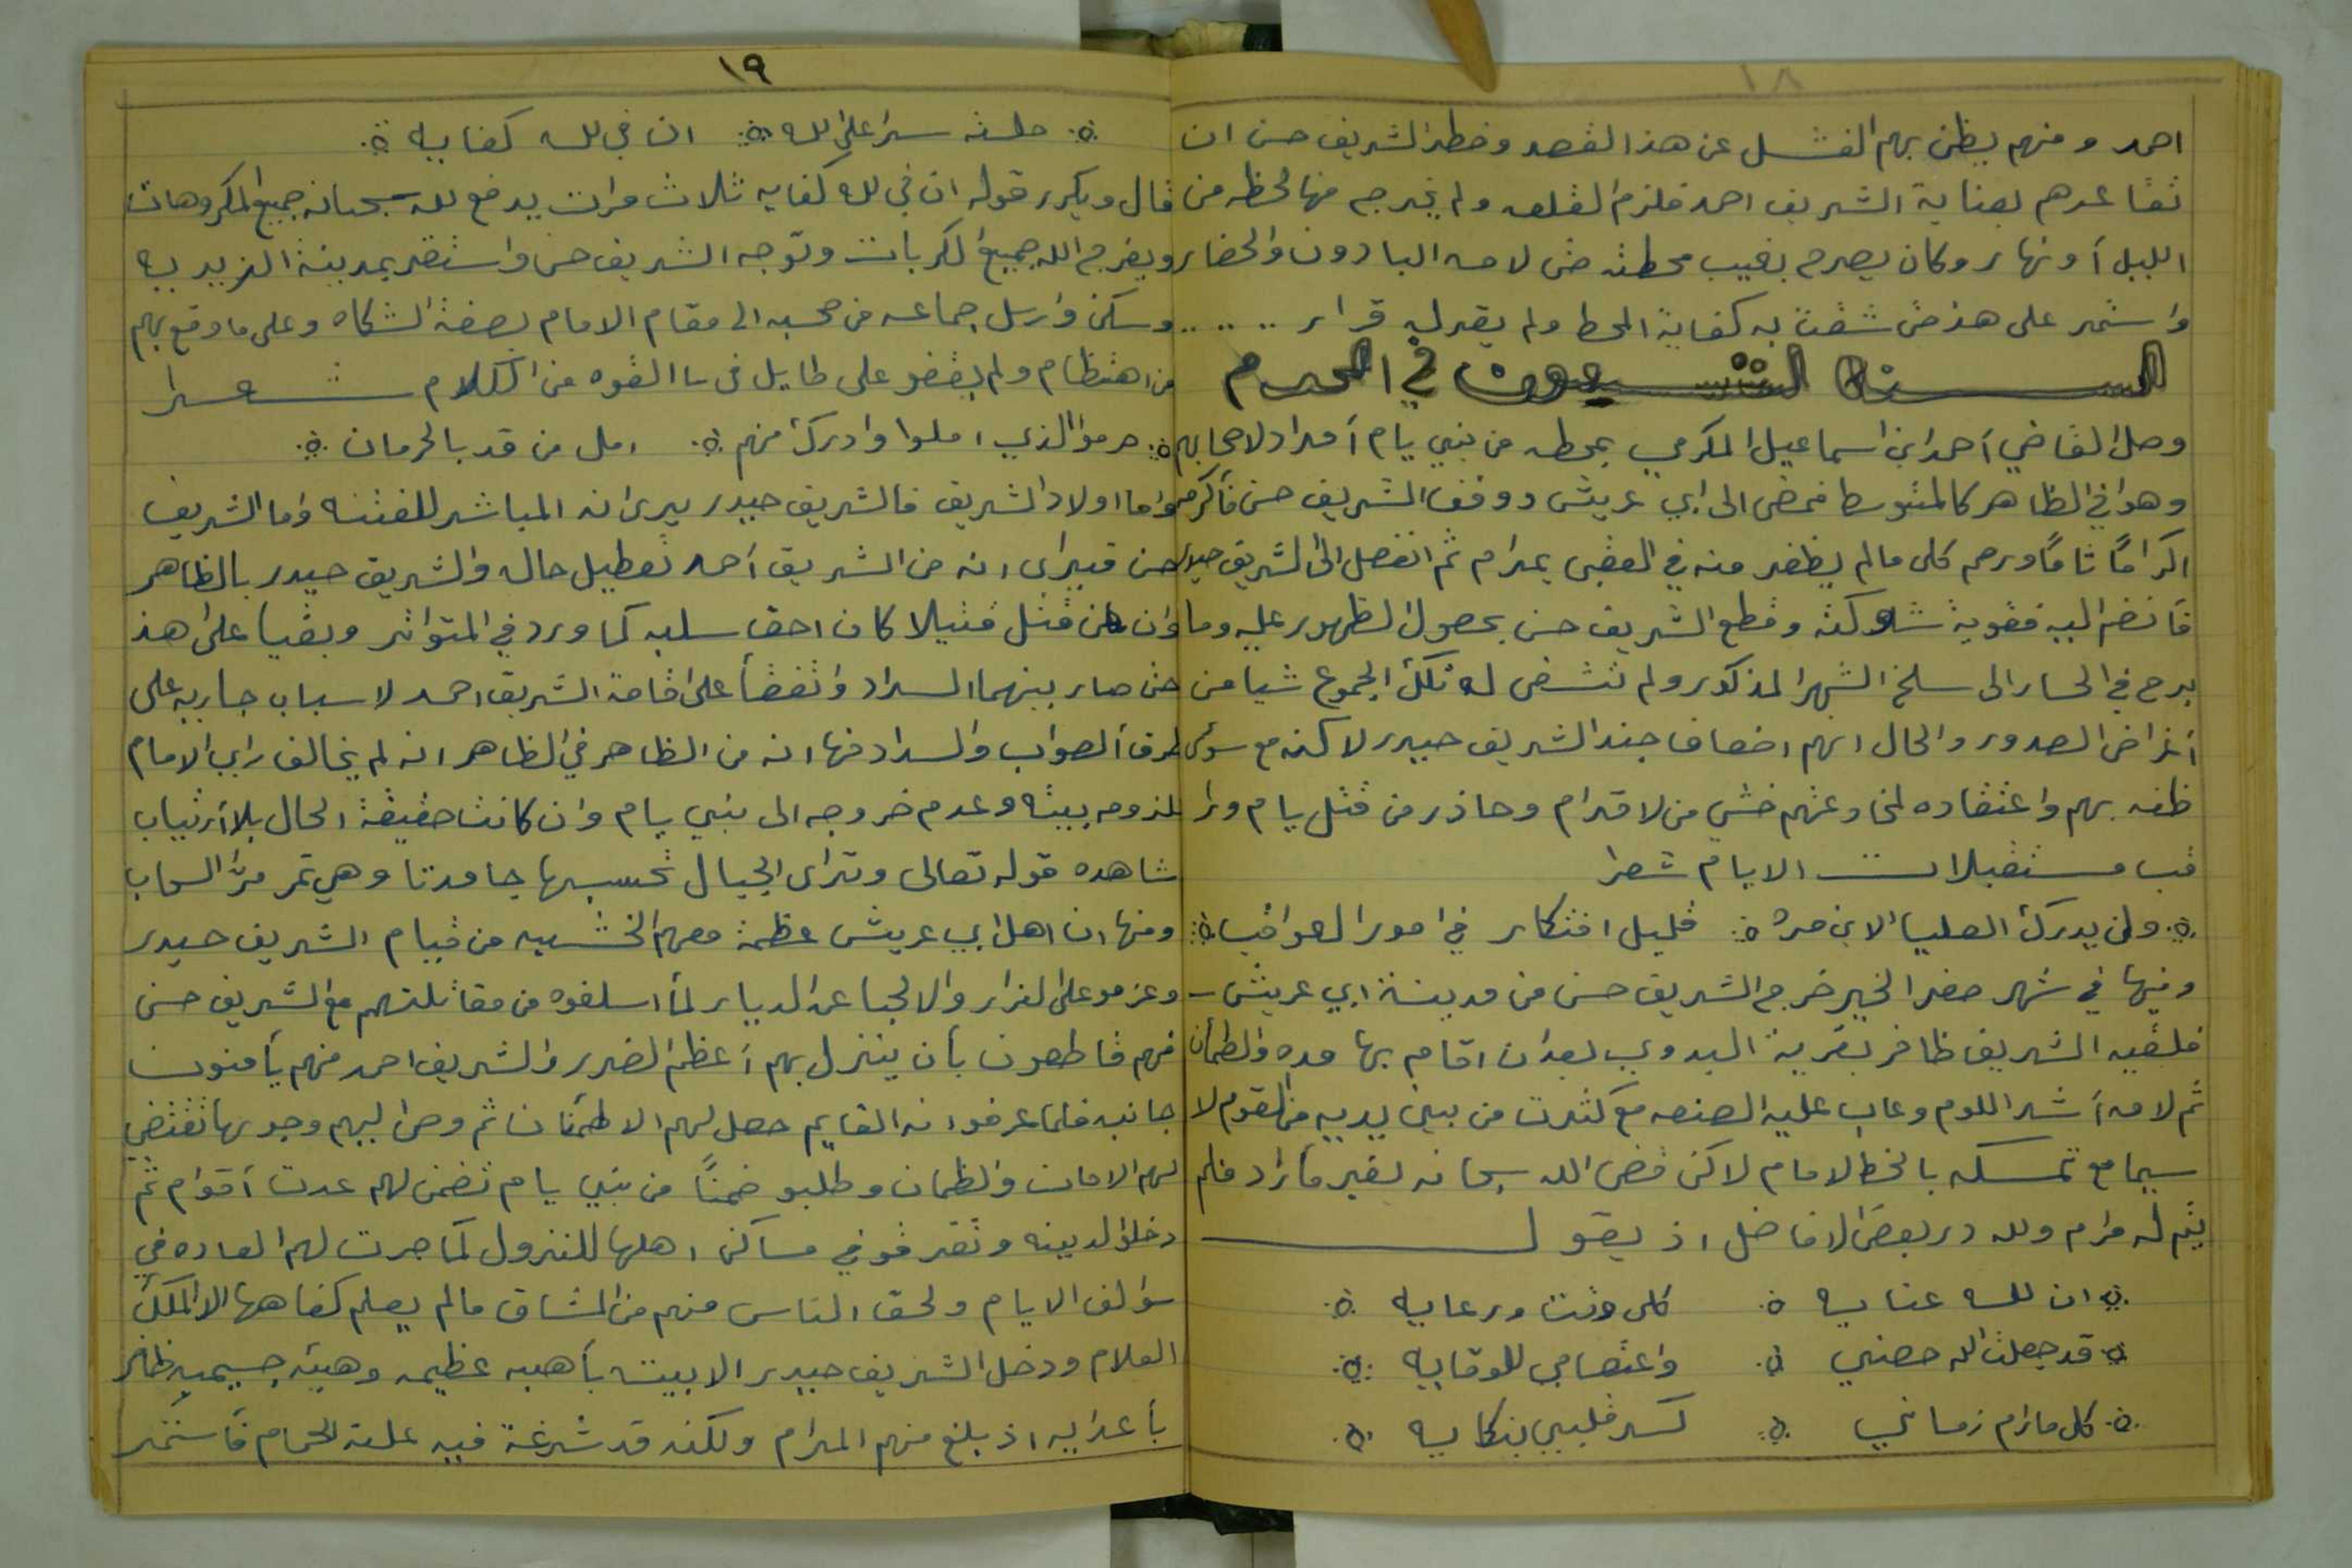 ١٨
احمد ومنهم يظن بهم الفشل عن هذا القصد وخطر الشريف حسن ان
تقاعدهم بعناية الشريف احمد فلزم القلعه ولم يخرج منها لحظه من
الليل أو نهار وكان يصرح بغيب محطته حتى لامه البادون والحضار
واستمر على هذ حتى شقت به كفاية المحط ولم يقر له قرار
السنة التسعون في المحرم
وصل القاضي أحمد ابن اسماعيل المكرمي بمحطه من بني يام أمداد لاصحابهم
وهو في الظاهر كالمتوسط فمضى الى ابي عريش ووقف الشريف حسن فأكرمه
اكرامًا تامًا ورحم كلى مالم يظفر منه في العقبى بمرام ثم انفصل الى الشريف حيدر
فانضم اليه فقويه شوكته وقطع الشريف حسن بحصول الظهور عليه وما
برح في الحسار الى سلخ الشهر المذكور ولم تشفى له تلك الجموع شيا من
أغراض الصدور والحال انهم اضعاف جند الشريف حيدر لاكنه مع سوء
ظنه بهم واعتقاده لمخادعتهم خشي من لاقدام وحاذر من قتل يام ورا
قب مستقبلات الايام شعرا
ولن يدرك العليا الابن حره قليل افتكار في امور العواقب
وفيها في شهر صفر الخير خرج الشريف حسن من مدينة ابي عريش
فلقيه الشريف ظافر بقرية البدوي بعد ان اقام بها مده واطمأن
ثم لامه أشد اللوم وعاب عليه الصنعه مع كثرت من بين يديه من القوم لا
سيما مع تمسكه بالخط الامام لاكن قضى الله سبحانه لغير ما أراد فلم
يتم له مرام ولله در بعض الافاضل اذ يقول
ان لله عنايه كلى وقت ورعايه
قد جعلت الله حصني واعتصامي للوقايه
كل مارام زماني كسر قلبي بنكايه
١٩
حلت سرا على الله ان في الله كفايه
قال ويكرر قوله ان في الله كفايه ثلاث مرات يدفع الله سبحانه جميع المكروهات
ويفرج الله جميع الكربات وتوجه الشريف حسن واستقر بمدينة الزيديه
وسكن وارسل جماعه من صحبه الى مقام الامام بصفة الشكاه وعلى ما وقع بهم
من اهتظام ولم يقفو على طايل في ما القوه من الكلام شعرا
حرموا الذي املوا وادرك منهم امل من قد بالحرمان
واما اولاد الشريف فالشريف حيدر يرى انه المباشر للفتنه واما الشريف
حسن فيرى انه من الشريف أحمد تعطيل حاله والشريف حيدر بالظاهر
وان من قتل قتيلا كان احق سلبه كما ورد في المتواتر وبقيا على هذ
حتى صار بينهما السداد واتفقا على اقامة الشريف احمد لاسباب جاريه على
طرق الصواب والسداد منها انه من الظاهر في الظاهر انه لم يخالف راي الامام
للزومه بيته وعدم خروجه الى بني يام وان كانت حقيقة الحال بلا أرتياب
شاهده قوله تعالى وترى الجبال تحسبها جامدتا وهي تمر مر السحاب
ومنها ان اهل ابي عريش عظمة معهم الخشيه من قيام الشريف حيدر
وعزمو على الفرار والالجا عن الديار لما اسلفوه من مقاتلتهم مع الشريف حسن
فهم قاطعون بأن ينزل بهم أعظم الضرر والشريف احمد منهم يأمنون
جانبه فلما عرفوا انه القايم حصل لهم الاطمئنان ثم وصل اليهم وجوبها تقتضي
لهم الامان والظمان وطلبو ضمنًا من بني يام تضمن لهم عدت أقوام ثم
دخلوا المدينه وتفرقو في مساكن اهلها للنزول كما جرت لهم العاده في
سوالف الايام ولحق الناس منهم من المشاق مالم يعلم كفاهها الا الملك
العلام ودخل الشريف حيدر الابيت بأهبه عظيمه وهيئه جسيمه ظافر
بأعدايه اذ بلغ منهم المرام ولكنه قد شرعة فيه علة الحمام فأستمر